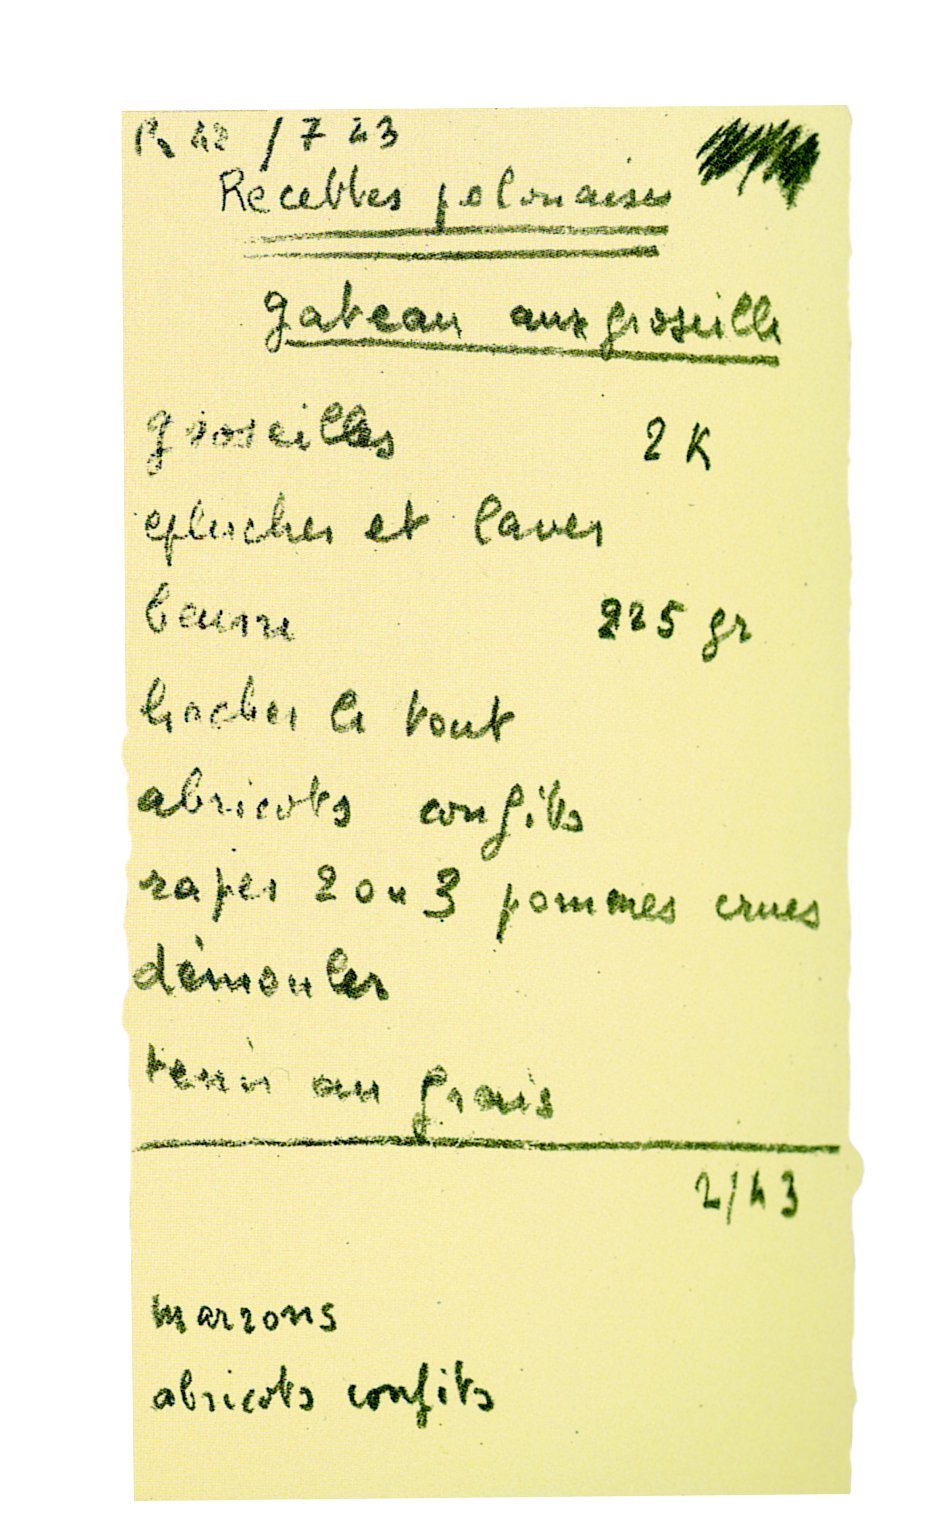 / 7 43
Recettes polonaises
gateau aux groseilles
groseilles 2 K
eplucher et laver
beurre 225 gr
hacher le tout
abricots confits
raper 2 ou 3 pommes crues
démouler
tenir au frais
2/43
marrons
abricots confits